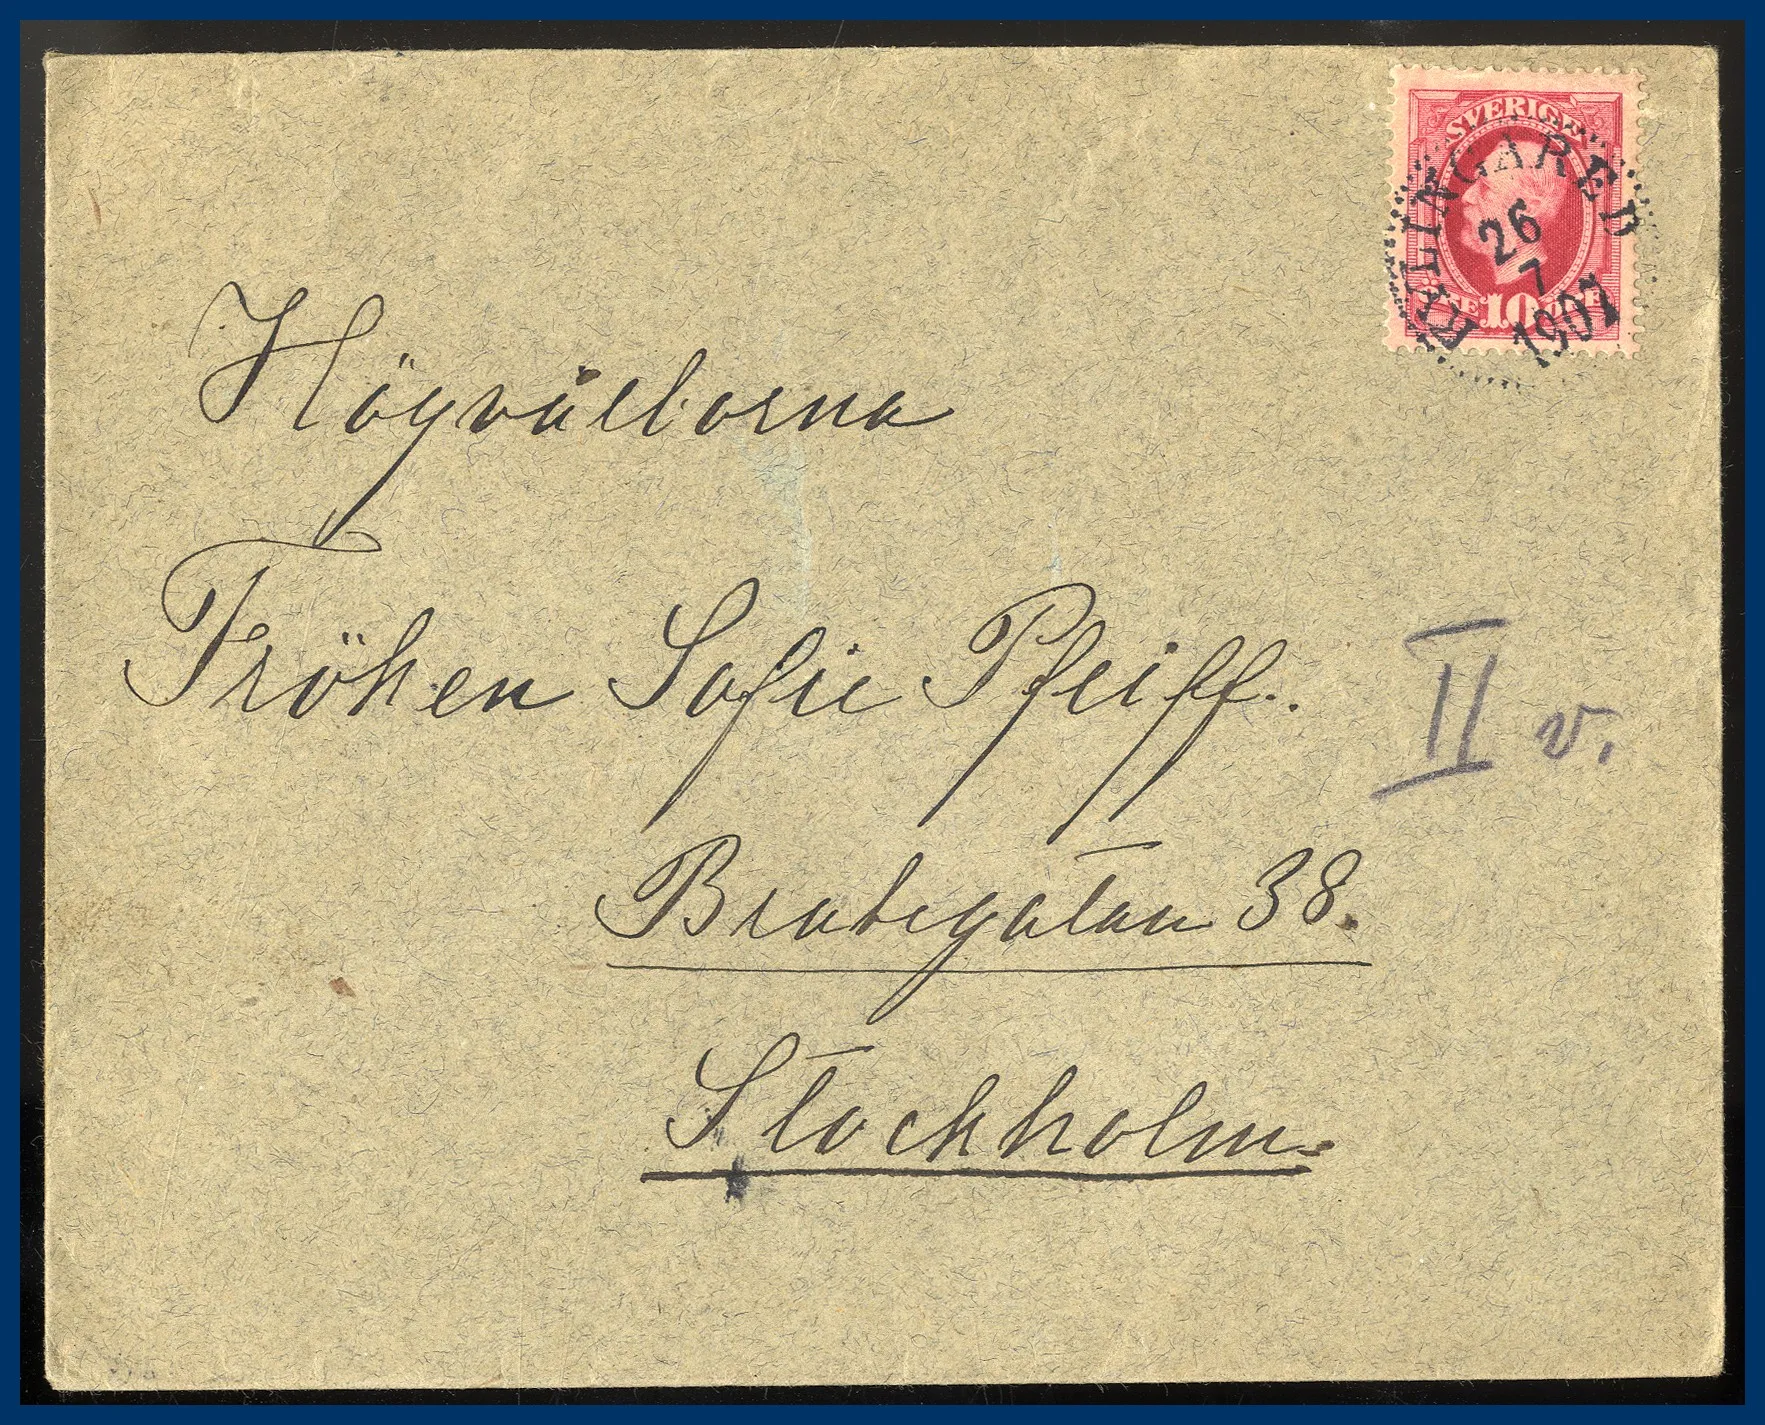 SVERIGE
RÄLINGARED
26
7
1907
ÖRE 10 ÖRE
Högvälborna
Fröken Sofie Pfeiff.
II v.
Brahegatan 38.
Stockholm